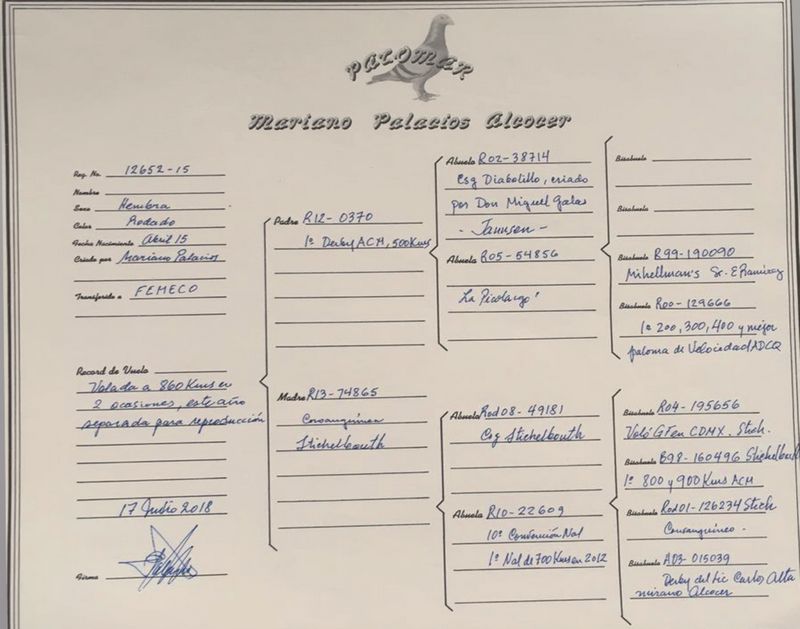 PALOMAR
Mariano Palacios Alcocer
Reg. No. 12652-15
Nombre
Sexo Hembra
Color Rodado
Fecha Nacimiento Abril 15
Criado por Mariano Palacios
Transferido a FEMECO
Record de Vuelo
Volada a 860 Kms en
2 ocasiones, este año
separada para reproducción
17 Julio 2018
Firma
Padre R12-0370
1º Derby ACM, 500 Kms
Madre R13-74865
Consanguínea
Stichelbouth
Abuelo R02-38714
Esg Diabolillo, criado
por Don Miguel Galas
- Jannsen -
Abuela R05-54856
"La Picolargo"
Abuelo Rod 08-49181
Esg Stichelbouth
Abuela R10-22609
10º Convención Nal
1º Nal de 700 Kms en 2012
Bisabuelo
Bisabuela
Bisabuelo R99-190090
Mihellman's Sr. E Ramírez
Bisabuela R00-129666
1º 200, 300, 400 y mejor
paloma de Velocidad ADCQ
Bisabuelo R04-195656
Voló GF en CDMX, Stich.
Bisabuela B98-160496 Stichelbouth
1º 800 y 900 Kms ACM
Bisabuelo Rod 01-126234 Stich
Consanguíneo -
Bisabuela A03-015039
Derby del Lic Carlos Alta
mirano Alcocer